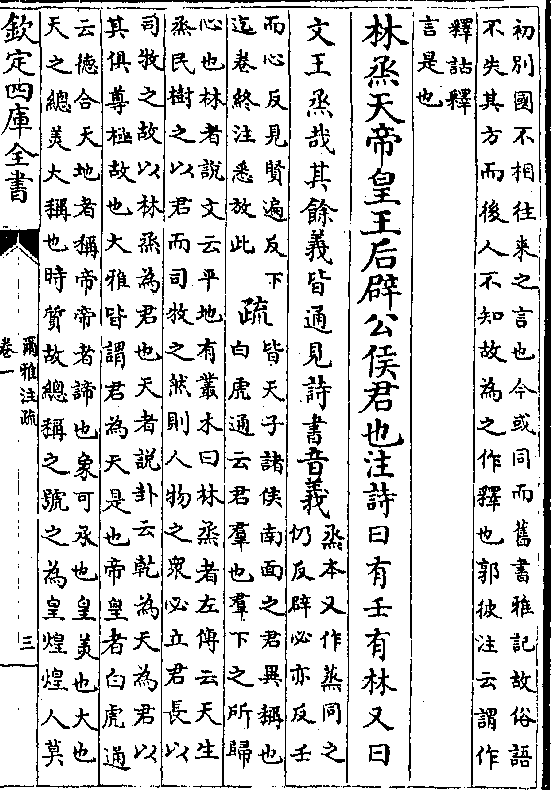 初別國不相往来之言也今或同而舊書雅記故俗語
不失其方而後人不知故為之作釋也郭彼注云謂作
釋詁釋
言是也
林烝天帝皇王后辟公侯君也注詩曰有壬有林又曰
文王烝哉其餘義皆通見詩書音義
烝本又作蒸同之
仍反辟必亦反壬
而心反見賢遍反下
迄卷終注悉放此
疏
皆天子諸侯南面之君異稱也
白虎通云君羣也羣下之所歸
心也林者說文云平地有叢木曰林烝者左傳云天生
烝民樹之以君而司牧之然則人物之衆必立君長以
司牧之故以林烝為君也天者說卦云乾為天為君以
其俱尊極故也大雅皆謂君為天是也帝皇者白虎通
云德合天地者稱帝帝者諦也象可承也皇美也大也
天之總美大稱也時質故總稱之號之為皇煌煌人莫
欽定四庫全書
爾雅注疏
卷一
三